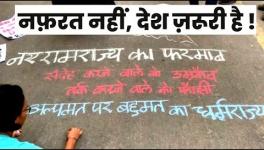 नफ़रत नहीं, देश ज़रूरी है !
नवरामराज्य का फरमान
संदेह करने वाले को उम्रकैद
तर्क करने वाले को फाँसी
अल्पमत पर बहुमत का धर्मराज्य